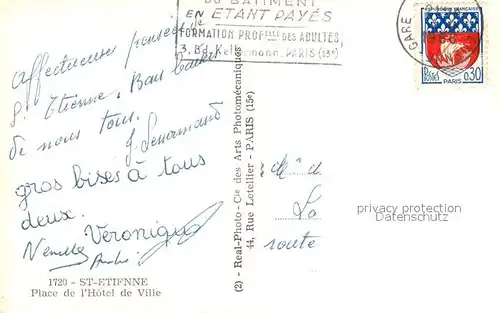 DU BATIMENT
EN ETANT PAYÉS
FORMATION PROFelle DES ADULTES,
3. Bd. Kellermann. PARIS (13e)
GARE
FRANÇAISE
POSTES 0,30
PARIS
Affectueuses pensées de
St Etienne. Bons baisers
de nous tous.
J. Lenormand
gros bises à tous
deux.
Veronique
(2) - Real-Photo - Cie des Arts Photomécaniques
44, Rue Letellier - PARIS (15e)
La
route
privacy protection
Datenschutz
1720 - ST-ETIENNE
Place de l'Hôtel de Ville